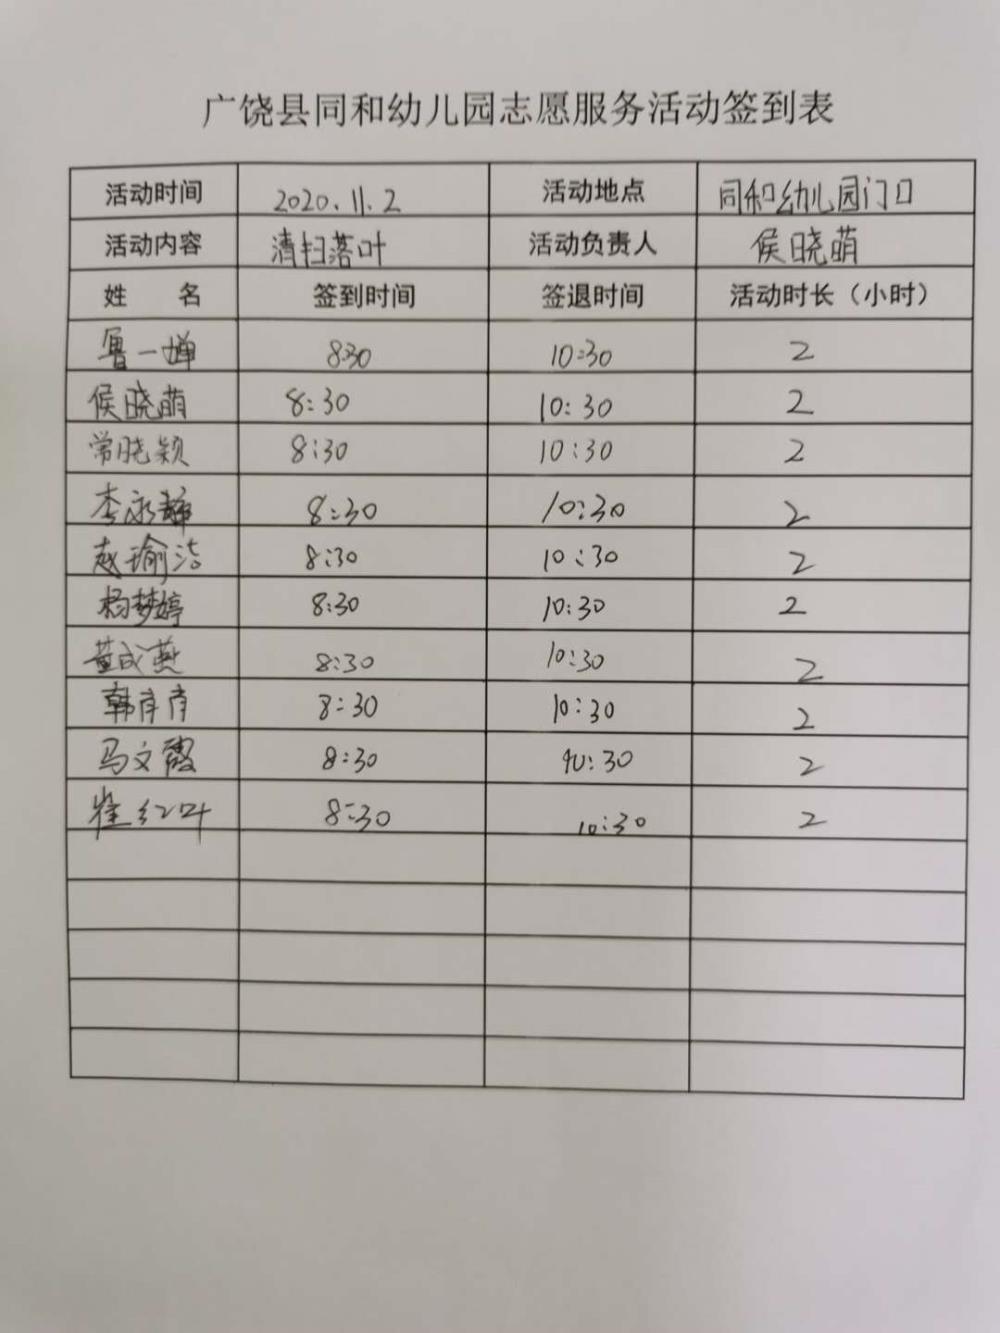 广饶县同和幼儿园志愿服务活动签到表
活动时间 2020.11.2 活动地点 同和幼儿园门口
活动内容 清扫落叶 活动负责人 侯晓萌
姓 名 签到时间 签退时间 活动时长（小时）
鲁一婵 8:30 10:30 2
侯晓萌 8:30 10:30 2
常晓颖 8:30 10:30 2
李永静 8:30 10:30 2
赵瑜洁 8:30 10:30 2
杨梦婷 8:30 10:30 2
董成燕 8:30 10:30 2
韩肖肖 8:30 10:30 2
马文霞 8:30 10:30 2
崔红叶 8:30 10:30 2